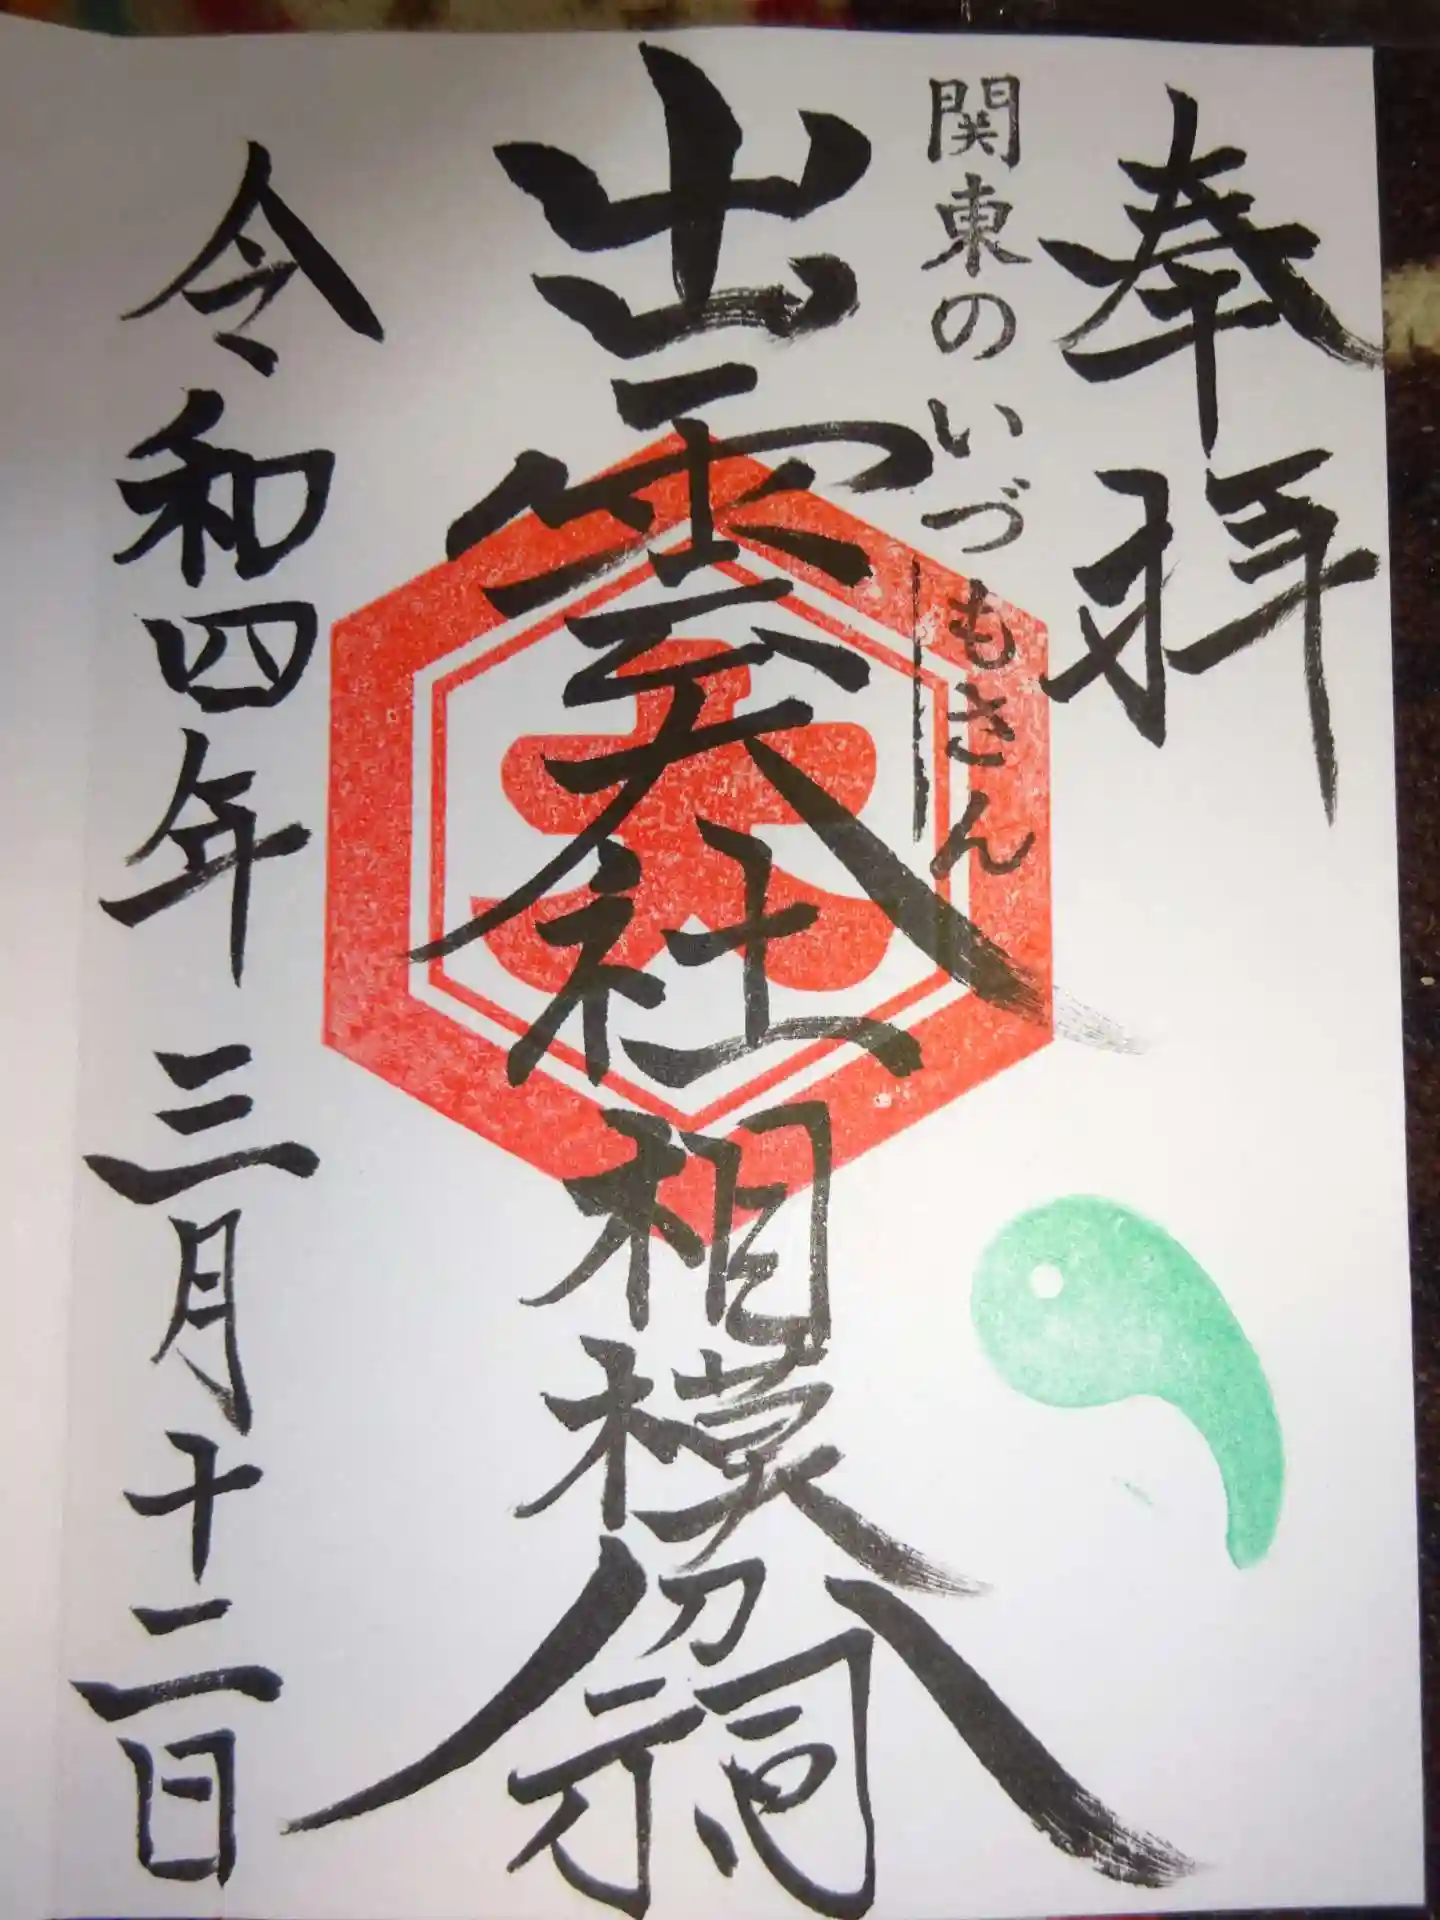 奉拝
関東のいづもさん
出雲大社相模分祠
令和四年三月十二日